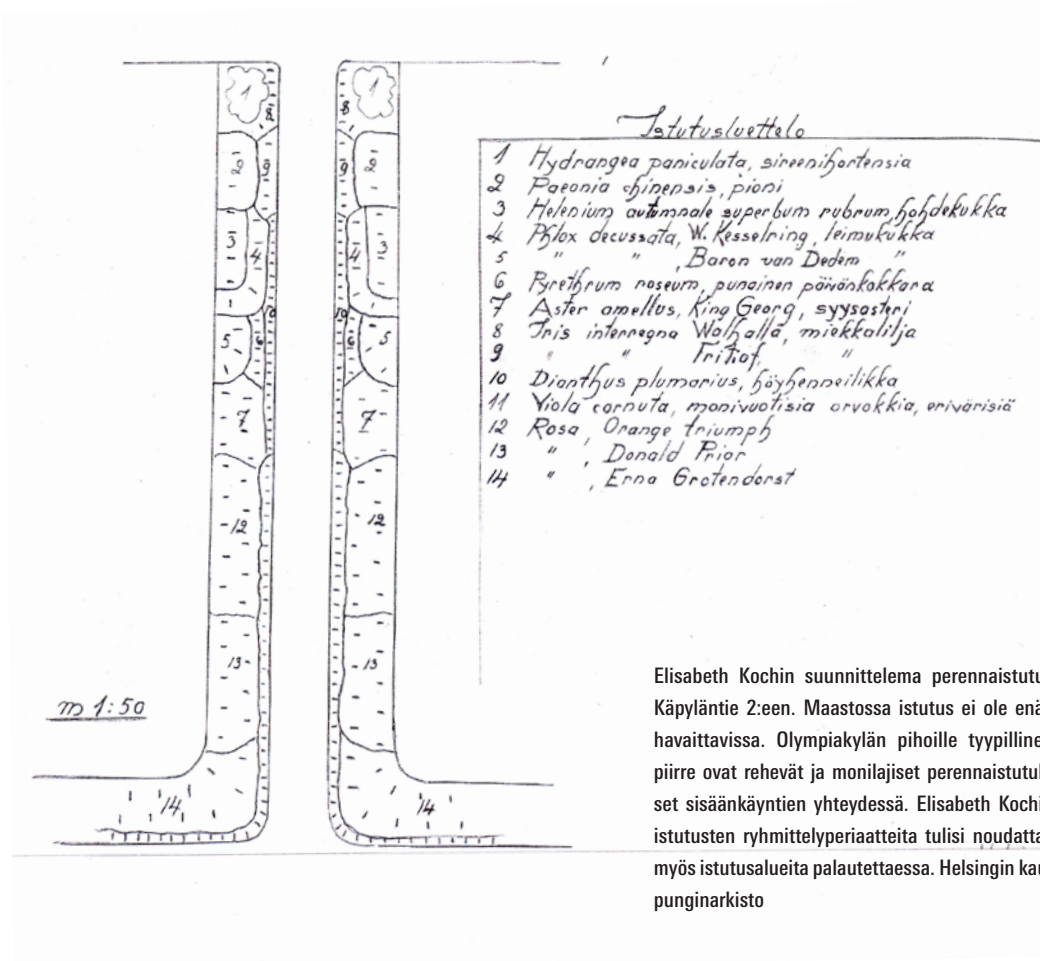 Istutusluettelo
1 Hydrangea paniculata, sireenihortensia
2 Paeonia chinensis, pioni
3 Helenium autumnale superbum rubrum, hohdekukka
4 Phlox decussata, W. Kesselring, leimukukka
5 " " , Baron van Dedem "
6 Pyrethrum roseum, punainen päivänkakkara
7 Aster amellus, King Georg, syysasteri
8 Iris interregna Walhalla, miekkalilja
9 " " Fritiof, "
10 Dianthus plumarius, höyhenneilikka
11 Viola cornuta, monivuotisia orvokkia, erivärisiä
12 Rosa, Orange triumph
13 " , Donald Prior
14 " , Erna Grotendorst
1 1
8 8
2 9 9 2
3 4 4 3
10 10
5 6 6 5
7 7
12 12
13 13
14 14
m 1:50
Elisabeth Kochin suunnittelema perennaistutu
Käpyläntie 2:een. Maastossa istutus ei ole enä
havaittavissa. Olympiakylän pihoille tyypilline
piirre ovat rehevät ja monilajiset perennaistutu
set sisäänkäyntien yhteydessä. Elisabeth Kochi
istutusten ryhmittelyperiaatteita tulisi noudatta
myös istutusalueita palautettaessa. Helsingin kau
punginarkisto